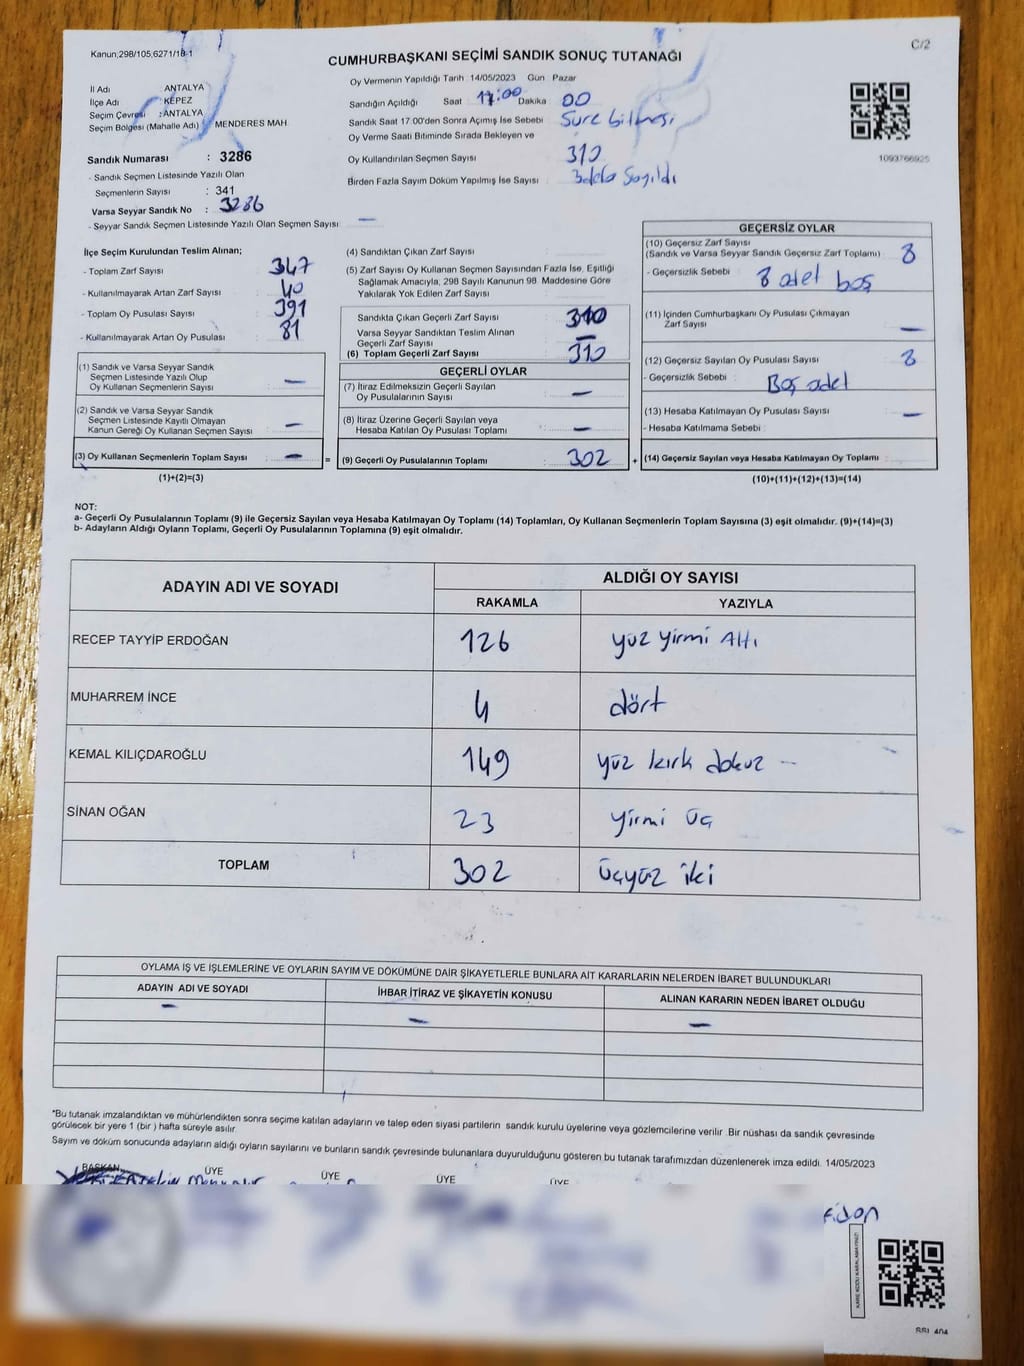 Kanun;298/105,6271/18-1
C/2
CUMHURBAŞKANI SEÇİMİ SANDIK SONUÇ TUTANAĞI
İl Adı ANTALYA
İlçe Adı KEPEZ
Seçim Çevresi : ANTALYA
Seçim Bölgesi (Mahalle Adı) MENDERES MAH.
Sandık Numarası : 3286
- Sandık Seçmen Listesinde Yazılı Olan
Seçmenlerin Sayısı : 341
Varsa Seyyar Sandık No : 3286
- Seyyar Sandık Seçmen Listesinde Yazılı Olan Seçmen Sayısı : —
Oy Vermenin Yapıldığı Tarih 14/05/2023 Gün Pazar
Sandığın Açıldığı Saat 17:00 Dakika 00
Sandık Saat 17.00'den Sonra Açılmış İse Sebebi Süre bitmesi
Oy Verme Saati Bitiminde Sırada Bekleyen ve
Oy Kullandırılan Seçmen Sayısı 310
Birden Fazla Sayım Döküm Yapılmış İse Sayısı : Sayıldı
1093766925
İlçe Seçim Kurulundan Teslim Alınan;
- Toplam Zarf Sayısı 347
- Kullanılmayarak Artan Zarf Sayısı : 40
- Toplam Oy Pusulası Sayısı : 391
- Kullanılmayarak Artan Oy Pusulası : 81
(1) Sandık ve Varsa Seyyar Sandık
Seçmen Listesinde Yazılı Olup
Oy Kullanan Seçmenlerin Sayısı : —
(2) Sandık ve Varsa Seyyar Sandık
Seçmen Listesinde Kayıtlı Olmayan
Kanun Gereği Oy Kullanan Seçmen Sayısı : —
(3) Oy Kullanan Seçmenlerin Toplam Sayısı : —
(1)+(2)=(3)
(4) Sandıktan Çıkan Zarf Sayısı :
(5) Zarf Sayısı Oy Kullanan Seçmen Sayısından Fazla İse, Eşitliği
Sağlamak Amacıyla, 298 Sayılı Kanunun 98. Maddesine Göre
Yakılarak Yok Edilen Zarf Sayısı :
Sandıkta Çıkan Geçerli Zarf Sayısı : 310
Varsa Seyyar Sandıktan Teslim Alınan
Geçerli Zarf Sayısı : —
(6) Toplam Geçerli Zarf Sayısı : 310
GEÇERLİ OYLAR
(7) İtiraz Edilmeksizin Geçerli Sayılan
Oy Pusulalarının Sayısı : —
(8) İtiraz Üzerine Geçerli Sayılan veya
Hesaba Katılan Oy Pusulası Toplamı : —
= (9) Geçerli Oy Pusulalarının Toplamı : 302 +
GEÇERSİZ OYLAR
(10) Geçersiz Zarf Sayısı
(Sandık ve Varsa Seyyar Sandık Geçersiz Zarf Toplamı) : 8
- Geçersizlik Sebebi : 8 adet boş
(11) İçinden Cumhurbaşkanı Oy Pusulası Çıkmayan
Zarf Sayısı : —
(12) Geçersiz Sayılan Oy Pusulası Sayısı : 8
- Geçersizlik Sebebi : Boş adet
(13) Hesaba Katılmayan Oy Pusulası Sayısı : —
- Hesaba Katılmama Sebebi :
(14) Geçersiz Sayılan veya Hesaba Katılmayan Oy Toplamı :
(10)+(11)+(12)+(13)=(14)
NOT:
a- Geçerli Oy Pusulalarının Toplamı (9) ile Geçersiz Sayılan veya Hesaba Katılmayan Oy Toplamı (14) Toplamları, Oy Kullanan Seçmenlerin Toplam Sayısına (3) eşit olmalıdır. (9)+(14)=(3)
b- Adayların Aldığı Oyların Toplamı, Geçerli Oy Pusulalarının Toplamına (9) eşit olmalıdır.
ADAYIN ADI VE SOYADI ALDIĞI OY SAYISI
RAKAMLA YAZIYLA
RECEP TAYYİP ERDOĞAN 126 yüz yirmi Altı
MUHARREM İNCE 4 dört
KEMAL KILIÇDAROĞLU 149 yüz kırk dokuz —
SİNAN OĞAN 23 yirmi üç
TOPLAM 302 üçyüz iki
OYLAMA İŞ VE İŞLEMLERİNE VE OYLARIN SAYIM VE DÖKÜMÜNE DAİR ŞİKAYETLERLE BUNLARA AİT KARARLARIN NELERDEN İBARET BULUNDUKLARI
ADAYIN ADI VE SOYADI İHBAR İTİRAZ VE ŞİKAYETİN KONUSU ALINAN KARARIN NEDEN İBARET OLDUĞU
— — —
*Bu tutanak imzalandıktan ve mühürlendikten sonra seçime katılan adayların ve talep eden siyasi partilerin sandık kurulu üyelerine veya gözlemcilerine verilir. Bir nüshası da sandık çevresinde
görülecek bir yere 1 (bir) hafta süreyle asılır.
Sayım ve döküm sonucunda adayların aldığı oyların sayılarını ve bunların sandık çevresinde bulunanlara duyurulduğunu gösteren bu tutanak tarafımızdan düzenlenerek imza edildi. 14/05/2023
BAŞKAN ÜYE ÜYE ÜYE ÜYE